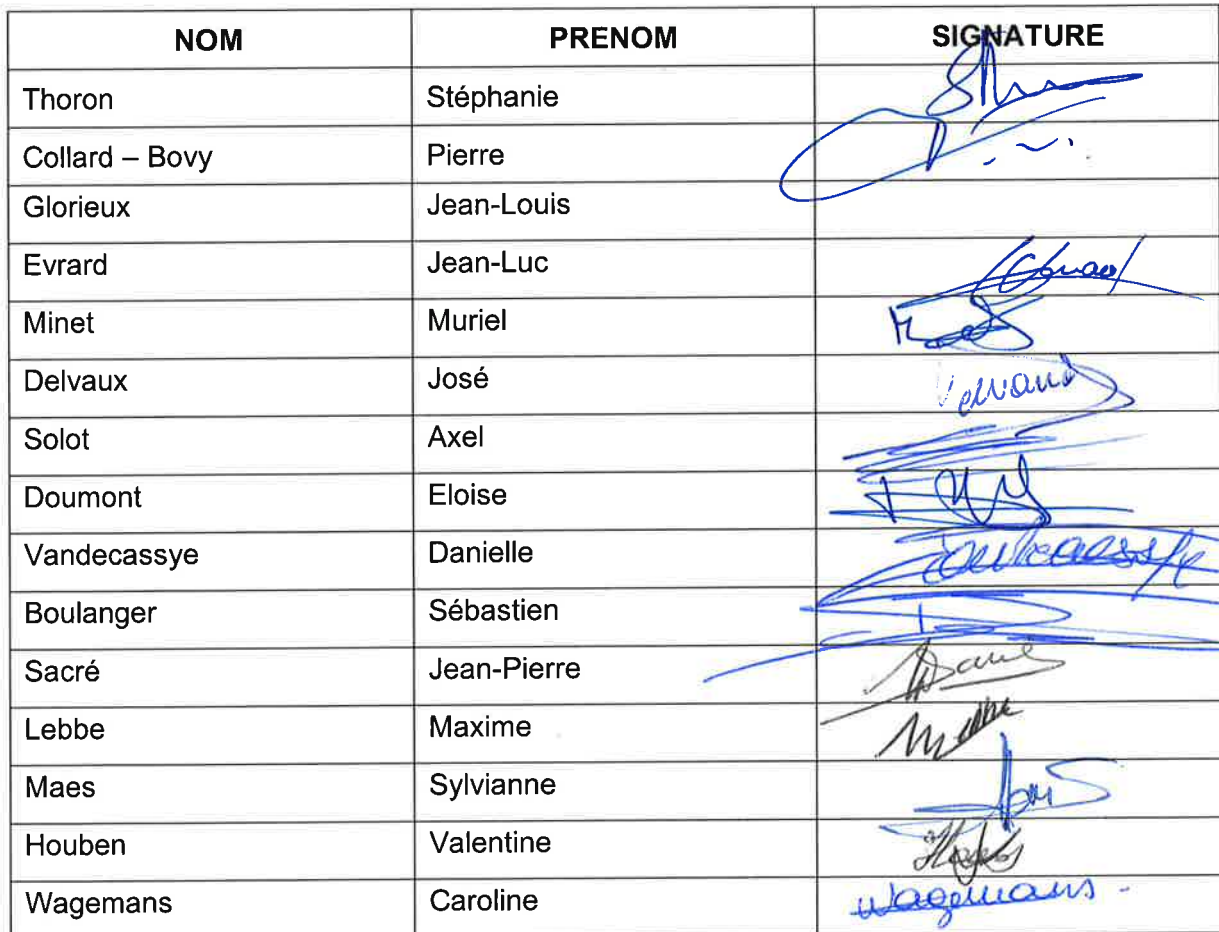 NOM PRENOM SIGNATURE
Thoron Stéphanie
Collard – Bovy Pierre
Glorieux Jean-Louis
Evrard Jean-Luc
Minet Muriel
Delvaux José
Solot Axel
Doumont Eloise
Vandecassye Danielle
Boulanger Sébastien
Sacré Jean-Pierre
Lebbe Maxime
Maes Sylvianne
Houben Valentine
Wagemans Caroline Wagemans